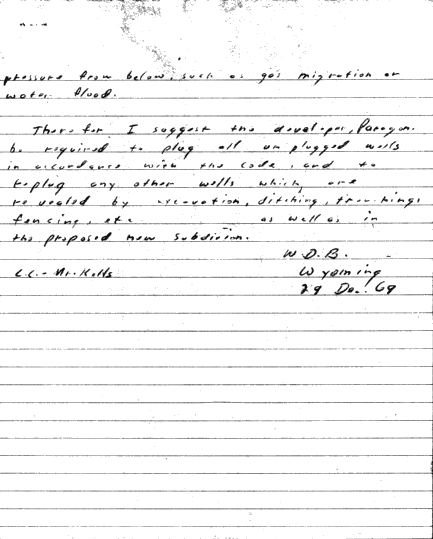 pressure from below, such as gas migration or
water flood.
Therefor I suggest the developer, Paragon.
be required to plug all unplugged wells
in accordance with the code, and to
replug any other wells which are
revealed by excavation, ditching, trenchings
fencing, etc as well as in
the proposed new subdivision.
W D. B.
c.c. - Mr. Kotts
Wyoming
29 Dec. 69